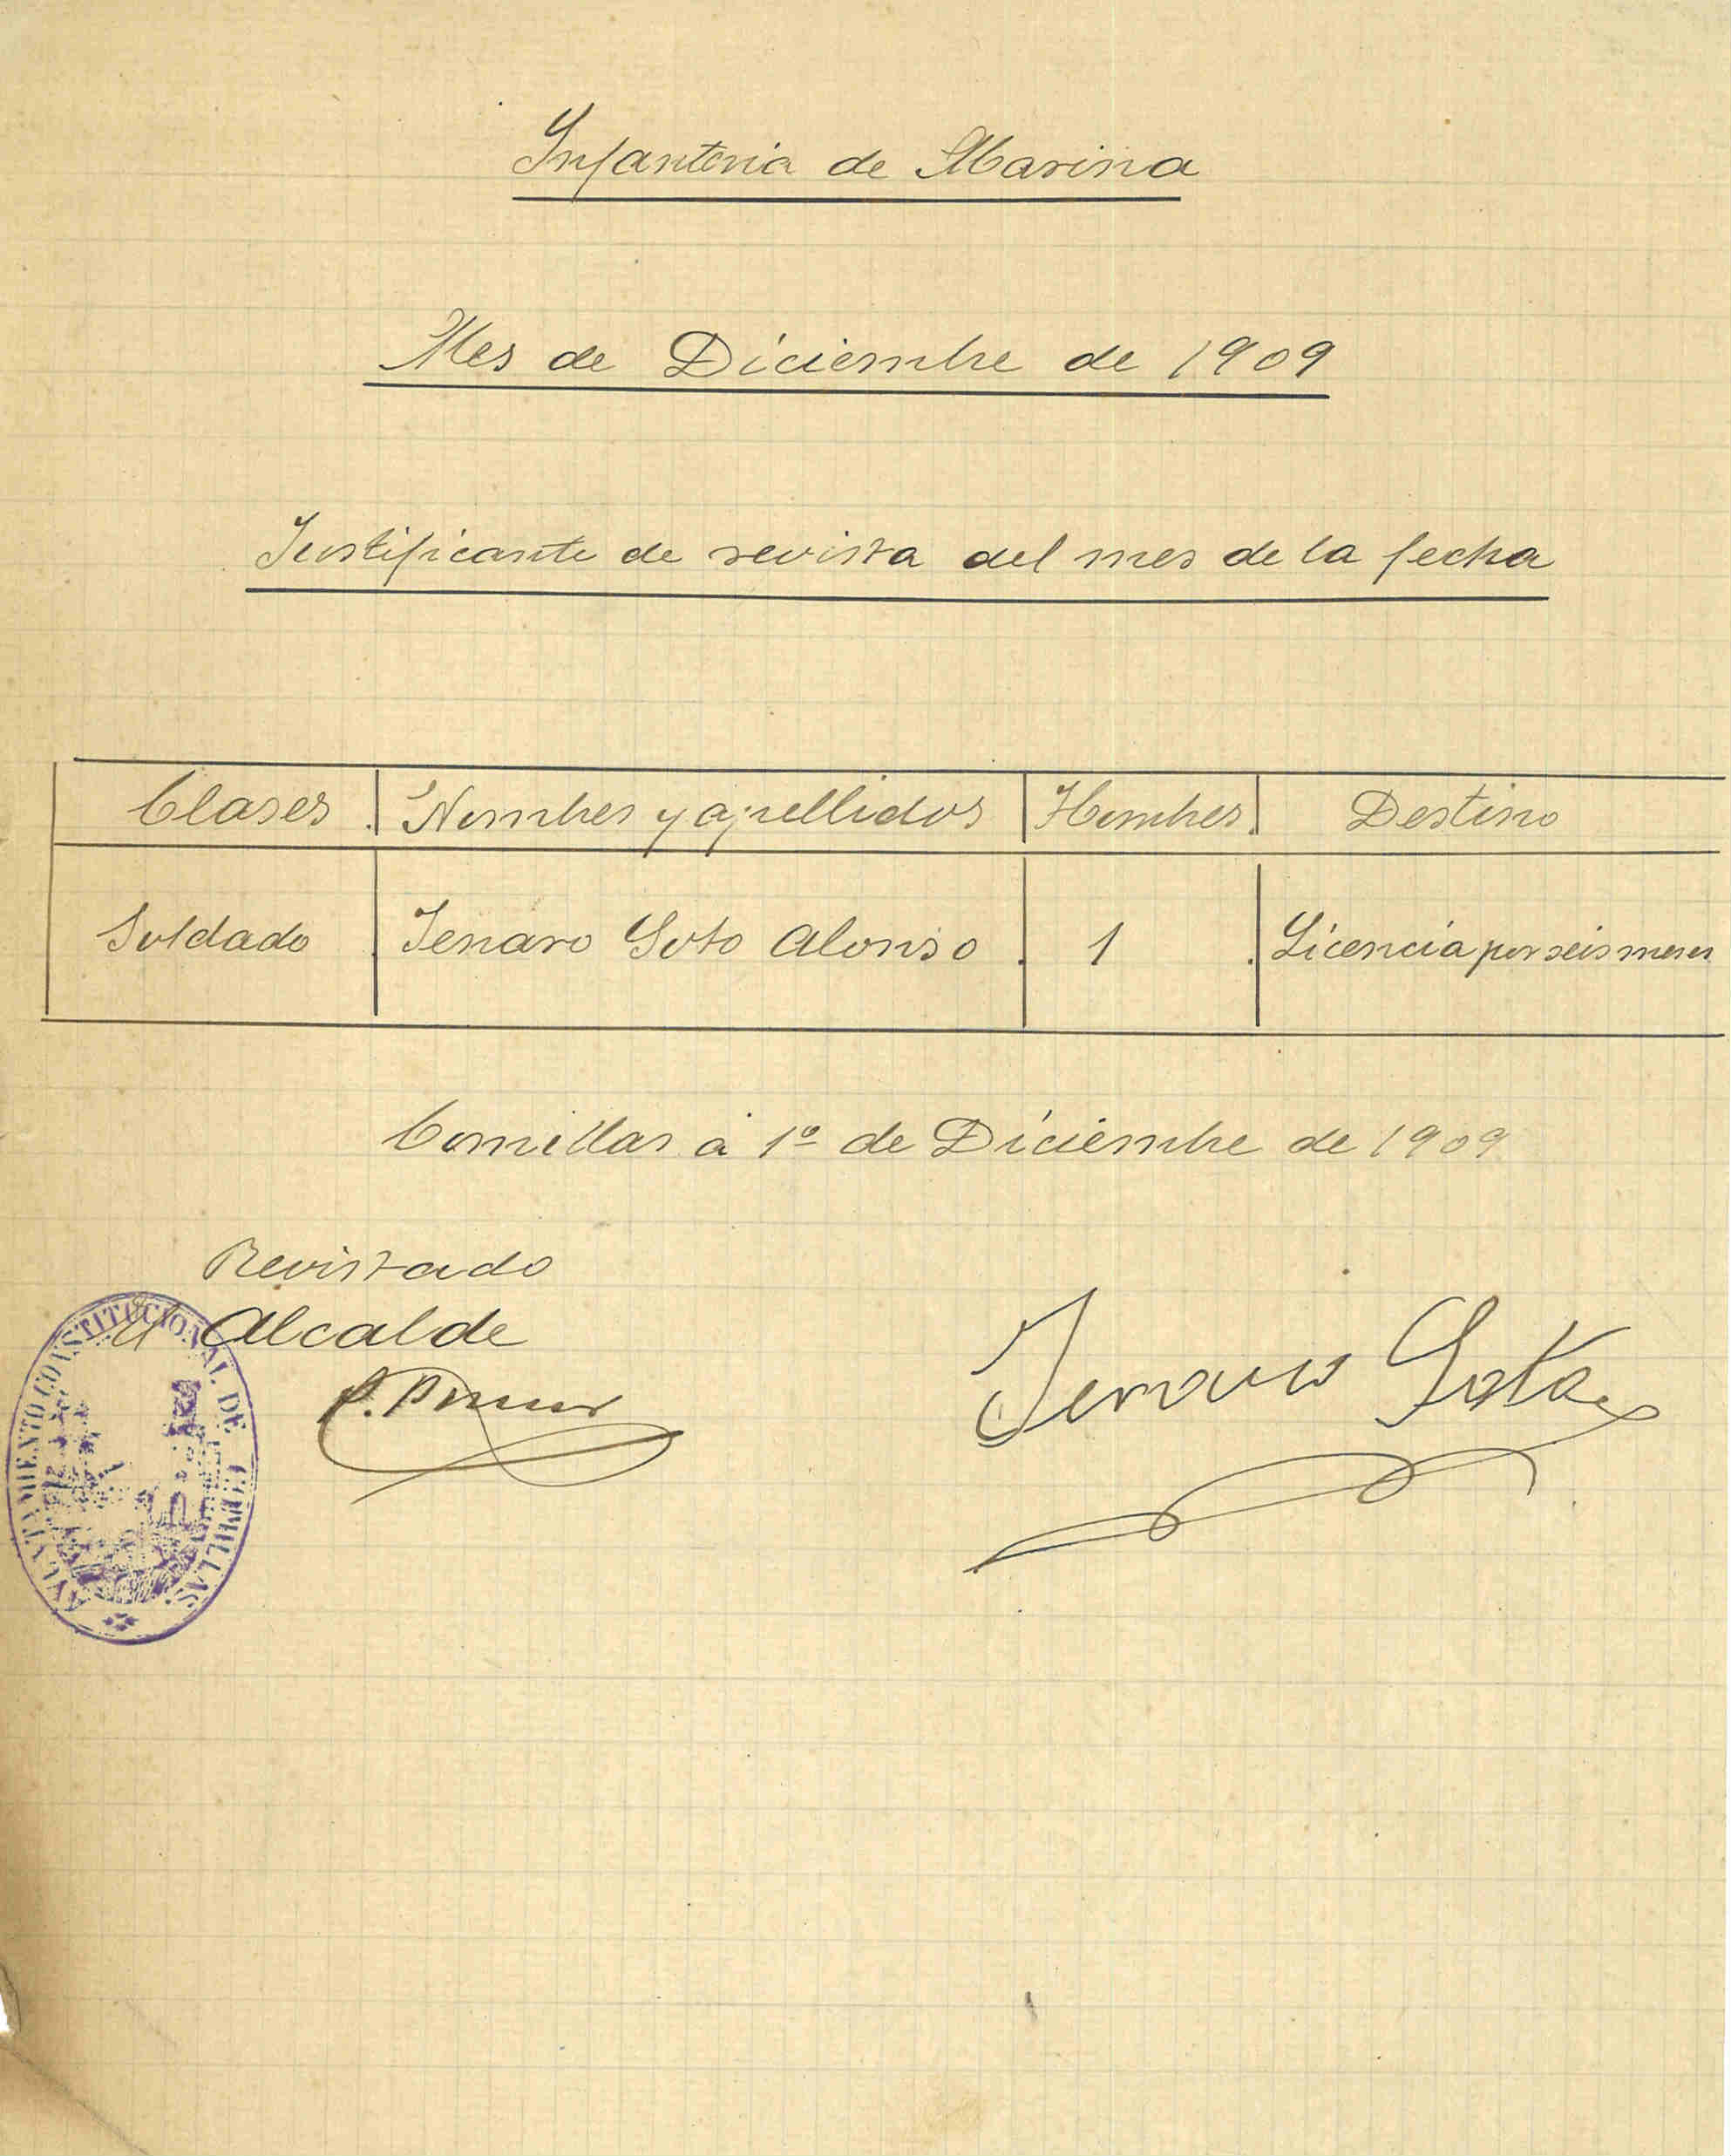 Infantería de Marina
Mes de Diciembre de 1909
Justificante de revista del mes de la fecha
Clases Nombres y apellidos Hombres Destino
Soldado Jenaro Soto Alonso 1 Licencia por seis meses
Comillas á 1º de Diciembre de 1909
Revistado
el Alcalde
Jenaro Soto
AYUNTAMIENTO CONSTITUCIONAL DE COMILLAS